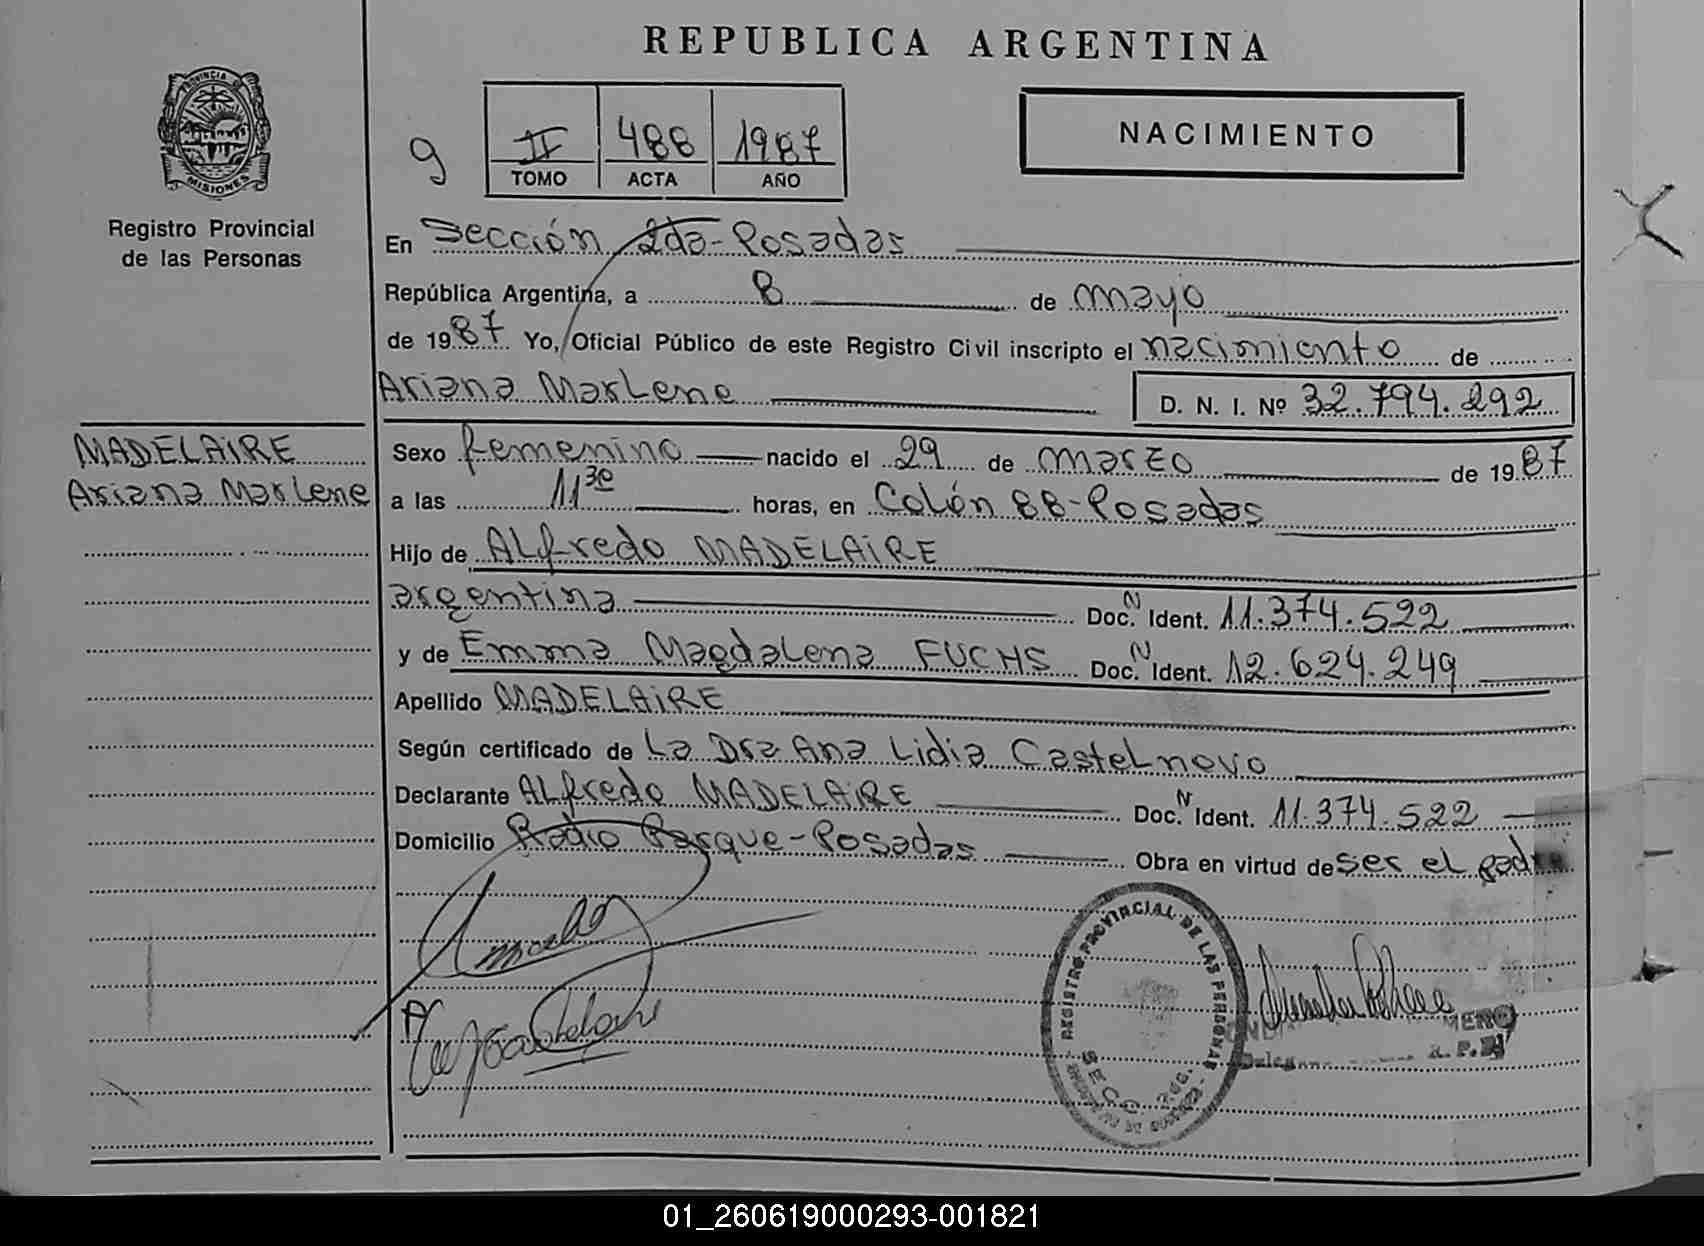 REPUBLICA ARGENTINA
PROVINCIA DE
MISIONES
Registro Provincial
de las Personas
9
II 488 1987
TOMO ACTA AÑO
NACIMIENTO
En Sección 2da-Posadas
República Argentina, a 8 de mayo
de 1987 Yo, Oficial Público de este Registro Civil inscripto el nacimiento de
Ariana Marlene D. N. I. Nº 32.794.292
MADELAIRE
Ariana Marlene
Sexo femenino nacido el 29 de marzo de 1987
a las 11³⁰ horas, en Colón 88-Posadas
Hijo de Alfredo MADELAIRE
argentina Doc. N Ident. 11.374.522
y de Emma Magdalena FUCHS Doc. N Ident. 12.624.249
Apellido MADELAIRE
Según certificado de La Dra Ana Lidia Castelnovo
Declarante Alfredo MADELAIRE Doc. N Ident. 11.374.522
Domicilio Radio Parque-Posadas Obra en virtud de ser el padre
REGISTRO PROVINCIAL DE LAS PERSONAS
SECC. 2da.
R. P. P.
01_260619000293-001821